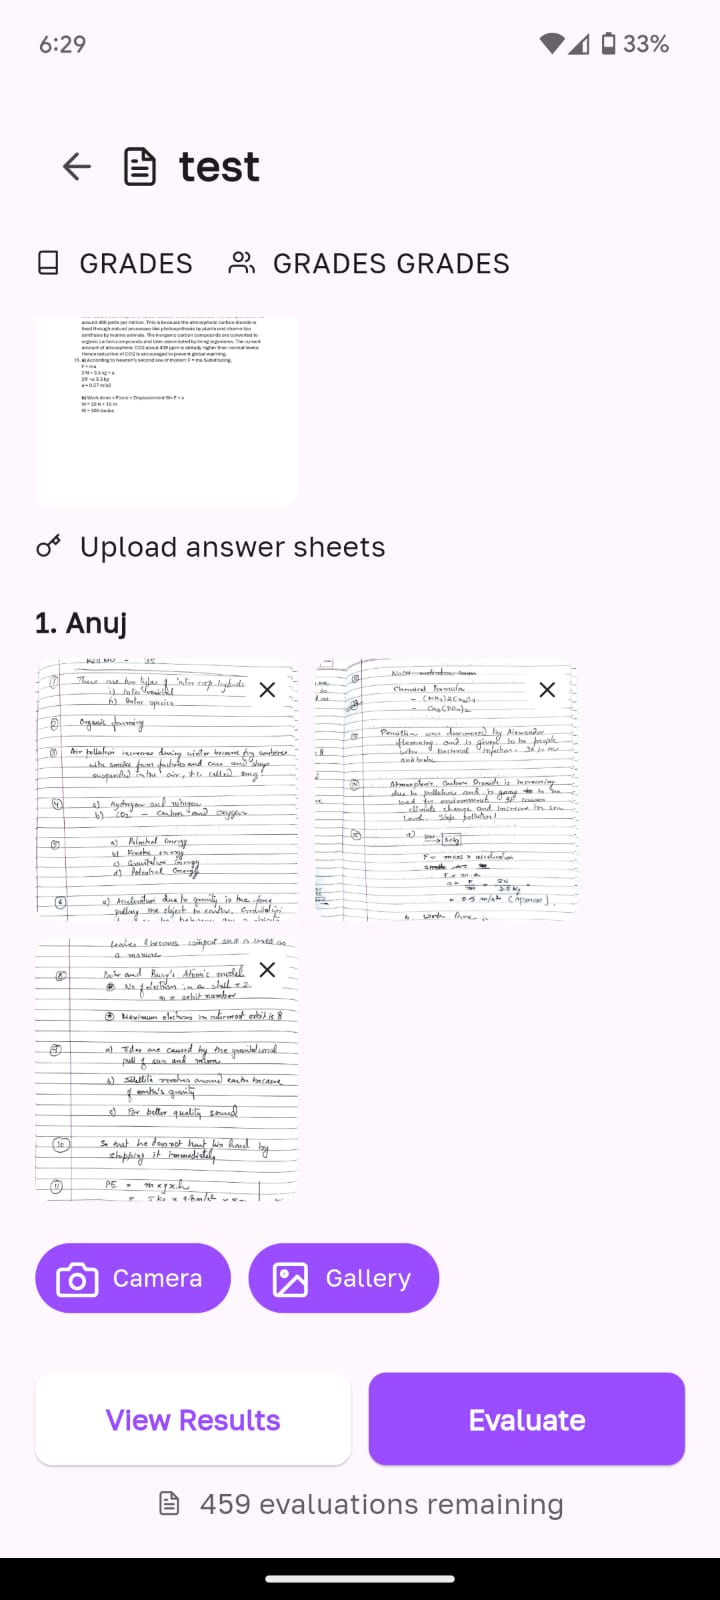 6:29
33%
test
GRADES
GRADES GRADES
around 409 parts per million. This is because the atmospheric carbon dioxide is
fixed through natural processes like photosynthesis by plants and chemo-bio
synthesis by marine animals. The inorganic carbon compounds are converted to
organic carbon compounds and later assimilated by living organisms. The current
amount of atmospheric CO2 about 409 ppm is already higher than normal levels.
Hence reduction of CO2 is encouraged to prevent global warming.
15. a) According to Newton's second law of motion: F = ma Substituting,
F = ma
a = 0.57 m/s2
b) Work done = Force × Displacement W= F × s
W = 20 N × 15 m
W = 300 Joules
Upload answer sheets
1. Anuj
Roll No - 35
① There are two types of inter crop hybrids
i) Inter varietal
ii) Inter species
② Organic farming
③ Air pollution increases during winter because fog combines
with smoke from factories and cars and stays
suspended in the air, it is called smog.
④ a) Hydrogen and nitrogen
b) CO2 - Carbon and oxygen
⑤ a) Potential Energy
b) Kinetic energy
c) Gravitation Energy
d) Potential Energy
⑥ a) Acceleration due to gravity is the force
pulling the object to earth. Gravitation
Chemical Formula
- Ca3(PO4)2
Penicillin was discovered by Alexander
flemming and is given to people
with bacterial infection. It is an
antibiotic
Atmospheric Carbon Dioxide is increasing
due to pollution and is going to be
bad for environment. It causes
climate change and increase in sea
level. Stop pollution!
a)
F = mass x acceleration
F = m.a
b. Work Done is
leaves & becomes compost and is used as
a manure
⑧ Bohr and Bury's Atomic model
No of electrons in a shell = 2
n = orbit number
Maximum electrons in outermost orbit is 8
⑨ a) Tides are caused by the gravitational
pull of sun and moon
b) Satellite revolves around earth because
of earth's gravity
c) For better quality sound
⑩ So that he does not hurt his hand by
stopping it immediately
⑪ PE = m x g x h
Camera
Gallery
View Results
Evaluate
459 evaluations remaining